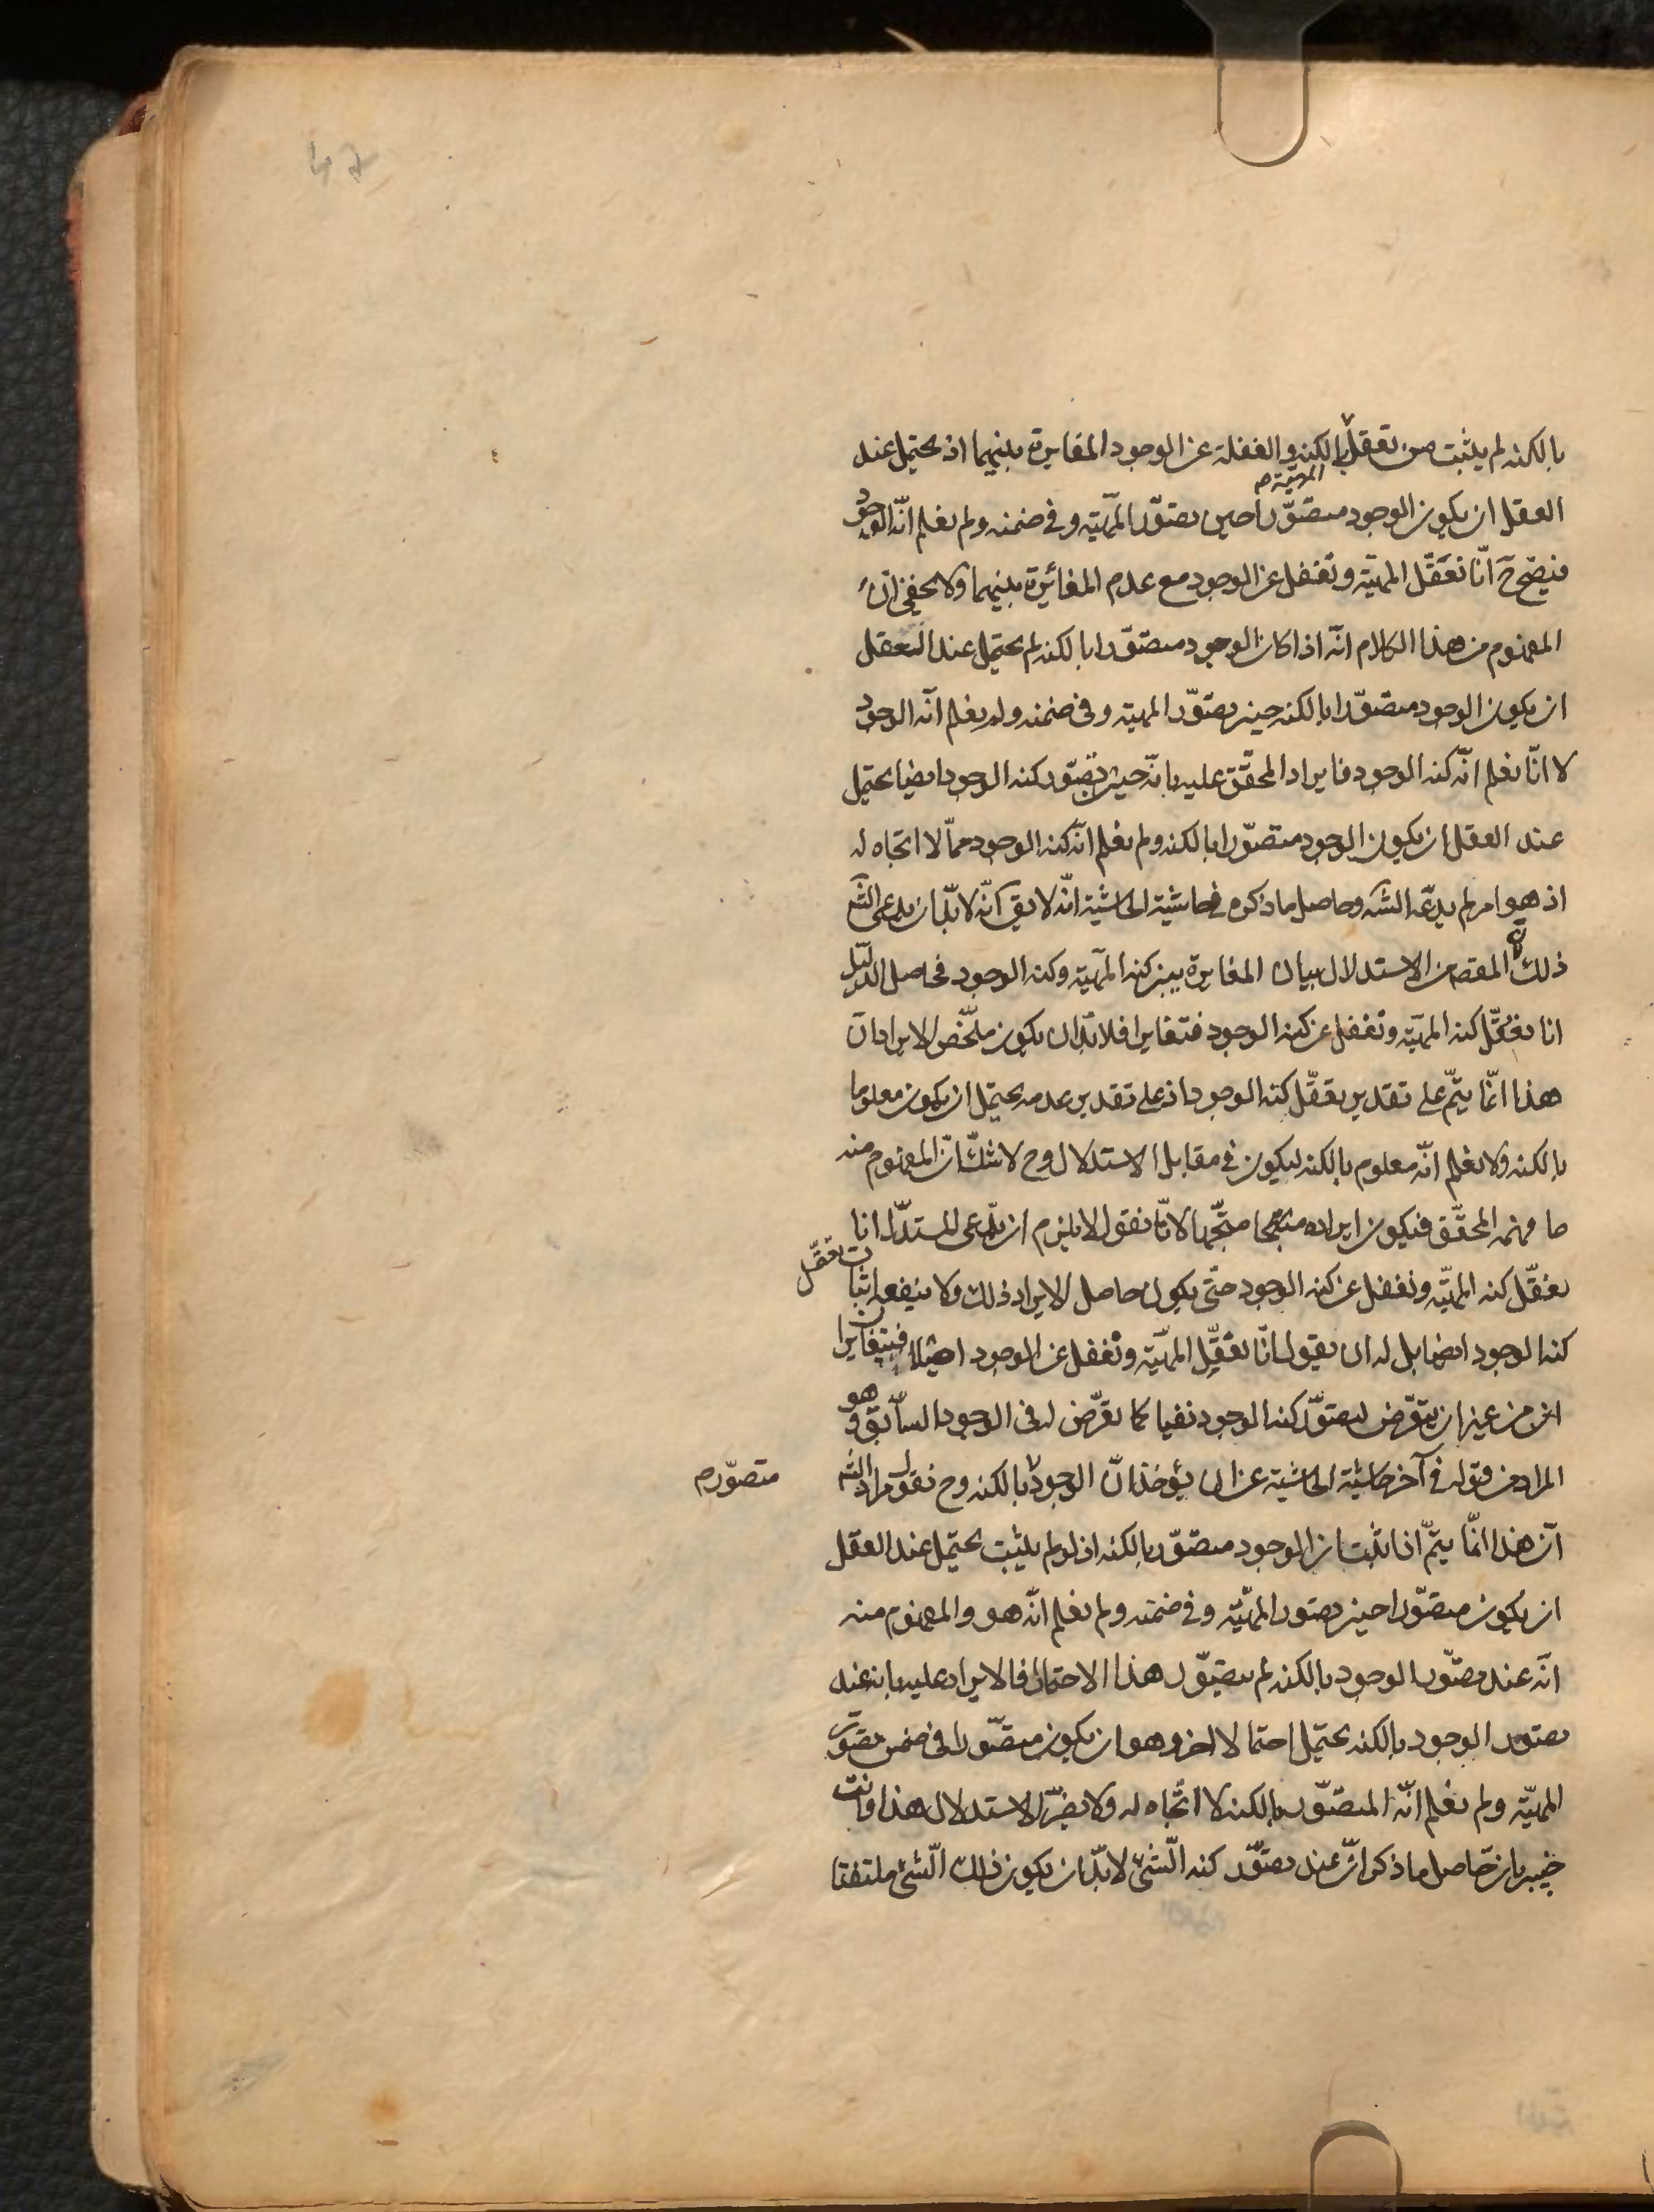 بالكنه لم يثبت من تعقل بالكنه والغفلة عن الوجود المغايرة بينهما اذ يحتمل عند
المهيّة
العقل ان يكون الوجود متصوّرا حين تصوّر المهيّة وفى ضمنه ولم نعلم انّه الوجود
فيصحّ ح انّا نعقّل المهيّة ونغفل عن الوجود مع عدم المغائرة بينهما ولا يخفى انّ
المفهوم من هذا الكلام انّه اذا كان الوجود متصوّرا بالكنه لم يحتمل عند التعقل
ان يكون الوجود متصوّرا بالكنه حين تصوّر المهيّة وفى ضمنه ولم نعلم انّه الوجود
لا انّا نعلم انّه كنه الوجود فايراد المحقّق عليه بانّه حيث تصوّر كنه الوجود ايضا يحتمل
عند العقل ان يكون الوجود متصوّرا بالكنه ولم نعلم انّه كنه الوجود ممّا لا اتّجاه له
اذ هو امر لم يدّعه الشه وحاصل ما ذكره فى حاشية الحاشية انّه لا يق انّه لا بدّ ان يدعى الشه
ذلك لان المقصه من الاستدلال بيان المغايرة بين كنه المهيّة وكنه الوجود فحاصل الدليل
انا نعقّل كنه المهيّة ونغفل عن كنه الوجود فتغايرا فلا بدّ ان يكون ملخّص الايراد ان
هذا انّما يتمّ على تقدير تعقّل كنه الوجود اذ على تقدير عدمه يحتمل ان يكون معلوما
بالكنه ولا نعلم انّه معلوم بالكنه ليكون فى مقابل الاستدلال وح لا شكّ انّ المفهوم منه
ما فهمه المحقّق فيكون ايراده متّجها لانّا نقول لا يلزم ان يدّعى المستدلّ انا
نعقّل كنه المهيّة ونغفل عن كنه الوجود حتّى يكون حاصل الايراد ذلك ولا ينفعه اثبات تعقّل
كنه الوجود ايضا بل له ان يقول انّا نعقّل المهيّة ونغفل عن الوجود فيتغايران
من غير ان يتعرّض لتصوّر كنه الوجود نفيا كما تعرّض له فى الوجود السابق وهو
المراد من قوله فى آخر حاشية الحاشية عن ان يؤخذ انّ الوجود بالكنه وح نقول مراد الشه
متصوّر
انّ هذا انّما يتمّ اذا ثبت ان الوجود متصوّر بالكنه اذ لو لم يثبت يحتمل عند العقل
ان يكون متصوّرا حين تصور المهيّة وفى ضمنه ولم نعلم انّه هو والمفهوم منه
انّه عند تصوّر الوجود بالكنه لم يتصوّر هذا الاحتمال فالايراد عليه بانه عند
تصوّر الوجود بالكنه يحتمل احتمالا اخر وهو ان يكون متصوّرا فى ضمن تصوّر
المهيّة ولم نعلم انّه المتصوّر بالكنه لا اتّجاه له ولا يضرّ الاستدلال هذا وانت
خبير بان حاصل ما ذكر انّ عند تصوّر كنه الشئ لا بدّ ان يكون ذلك الشئ ملتفتا